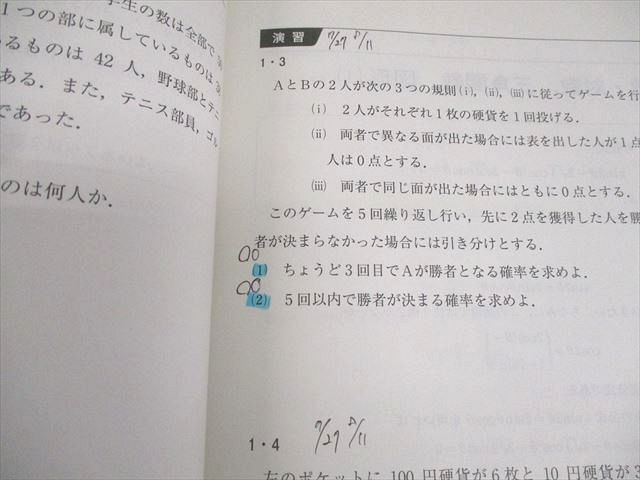 学生の数は全部で
1つの部に属しているものは,
るものは 42 人, 野球部とテニ
ある. また, テニス部員, ゴル
であった.
のは何人か.
演習
7/27 8/11
1・3
AとBの2人が次の3つの規則(i), (ii), (iii)に従ってゲームを行
(i) 2人がそれぞれ1枚の硬貨を1回投げる.
(ii) 両者で異なる面が出た場合には表を出した人が1点
人は0点とする.
(iii) 両者で同じ面が出た場合にはともに0点とする.
このゲームを5回繰り返し行い, 先に2点を獲得した人を勝
者が決まらなかった場合には引き分けとする.
(1) ちょうど3回目でAが勝者となる確率を求めよ.
(2) 5回以内で勝者が決まる確率を求めよ.
1・4
7/27 8/11
左のポケットに 100 円硬貨が6枚と 10 円硬貨が3